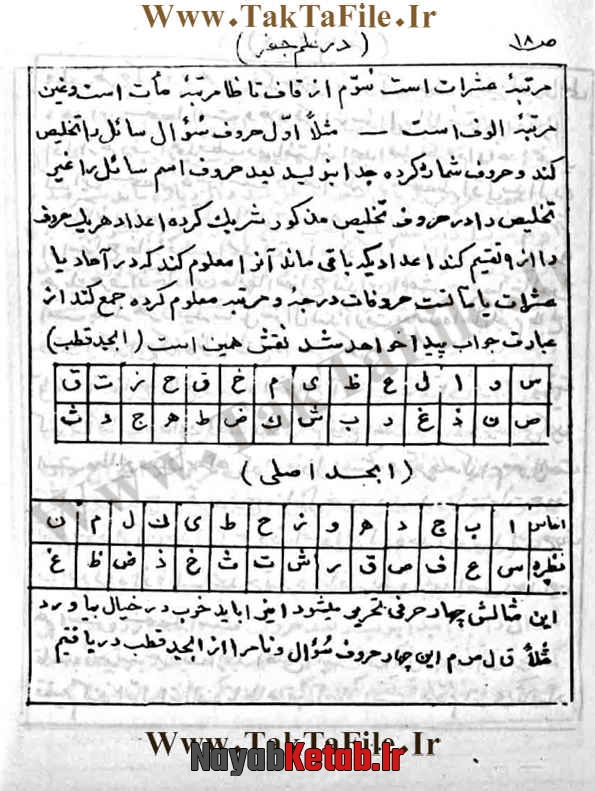 Www.TakTaFile.Ir
ص ١٨ (در علم جفر)
مرتبهٔ عشرات است سوّم از قاف تا ظا مرتبهٔ مأت است وغین
مرتبهٔ الوف است — مثلاً اوّل حروف سُؤال سائل را تخلیص
کند و حروف شماره کرده جدا بنویسد بعد حروف اسم سائل را غیر
تخلیص داد در حروف تخلیص مذکور شریک کرده اعداد هریک حروف
را از ۹ تقیم کند اعدادیکه باقی ماند آنرا معلوم کند که در آحاد یا
عشرات یا مأت است حروفات درجه و مرتبه معلوم کرده جمع کند از
عبارت جواب پیدا خواهد شد نقش همین است (ابجد قطب)
س و ا ل ع ظ ی م خ ق ح ز ت ق
ص ن ذ غ د ب ش ک ض ط ه ج د ث
(ابجد اصلی)
اساس ا ب ج د ه و ز ح ط ی ک ل م ن
نظیره س ع ف ص ق ر ش ت ث خ ذ ض ظ غ
این مثالش چهار حرفی تحریر میشود اینرا باید خوب در خیال بیاورد
مثلاً ق ل م این چهار حروف سُؤال و نام را از ابجد قطب دریافتیم
Www.TakTaFile.Ir
NayabKetab.ir